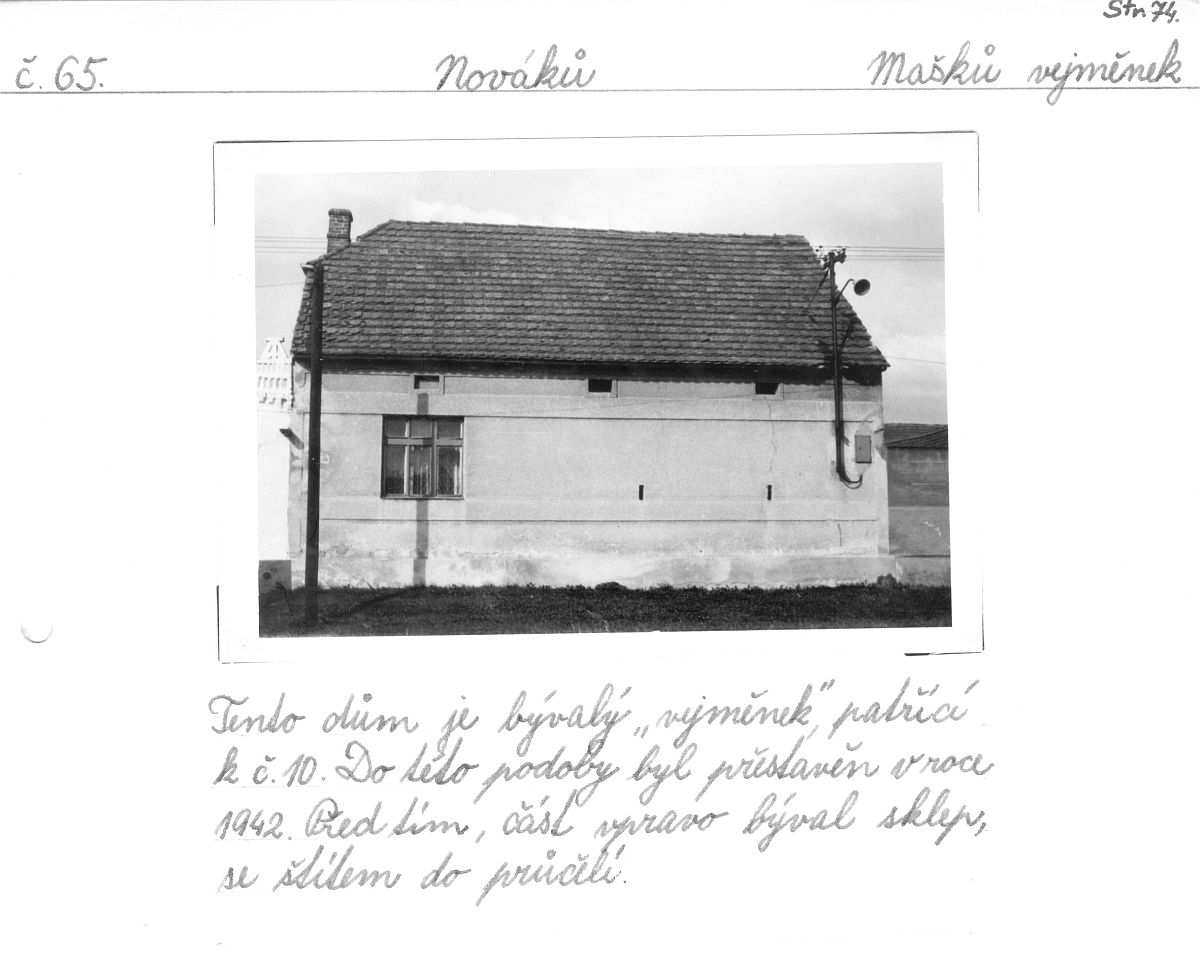 Str. 74.
č. 65. Nováků Mašků vejměnek
Tento dům je bývalý „vejměnek", patřící
k č. 10. Do této podoby byl přestavěn v roce
1942. Před tím, část vpravo býval sklep,
se štítem do průčelí.